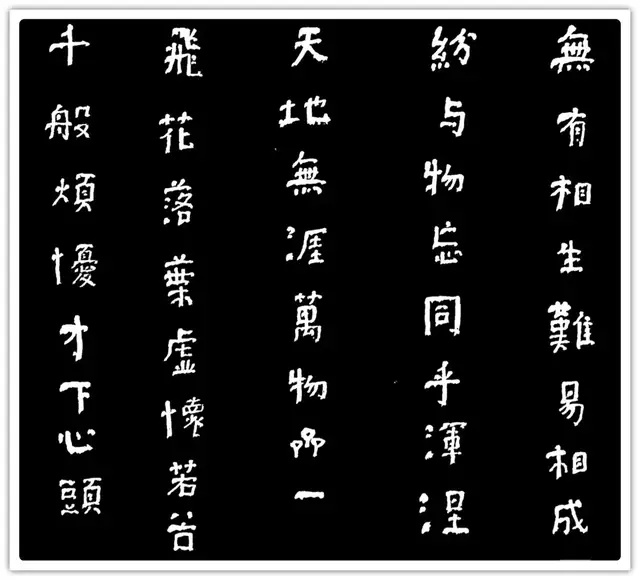 無有相生難易相成
紛与物忘同乎渾涅
天地無涯萬物齊一
飛花落葉虚懷若谷
千般煩擾才下心頭